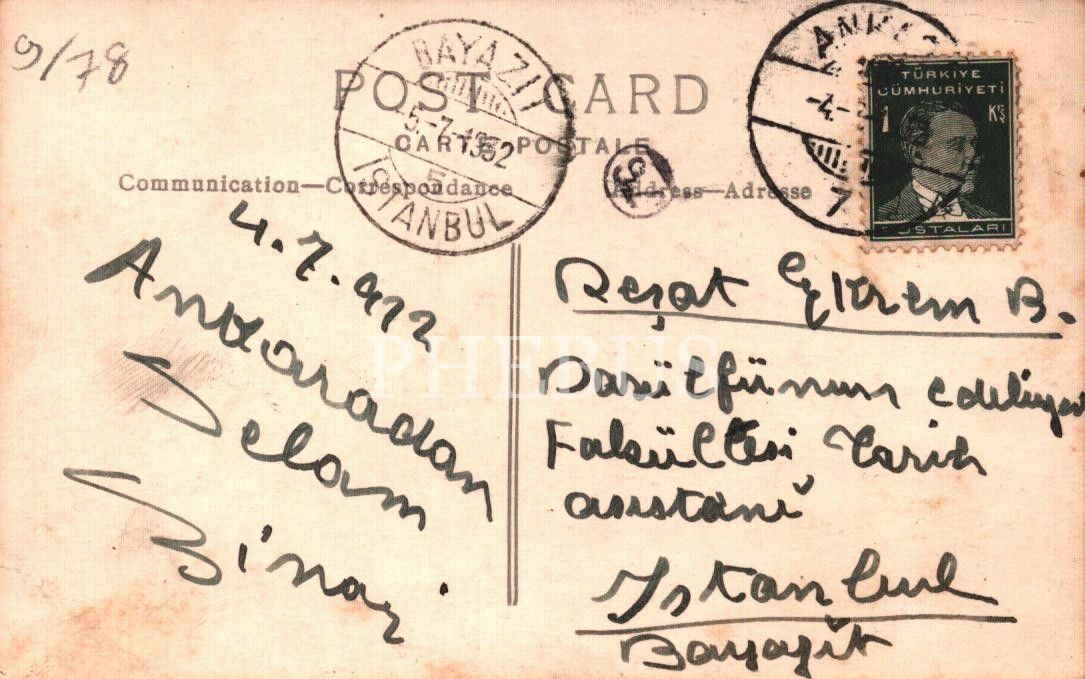 9/78
BAYAZIT
5-7-1932
5
ISTANBUL
POST CARD
CARTE POSTALE
Communication—Correspondance
Address—Adresse
TÜRKİYE
CÜMHURİYETİ
1 Krş
POSTALARI
4.7.932
Ankaradan
Selam
Reşat Ekrem B.
Darülfünun edebiyat
Fakültesi Tarih
asistanı
Istanbul
Bayazit
PHEBUS